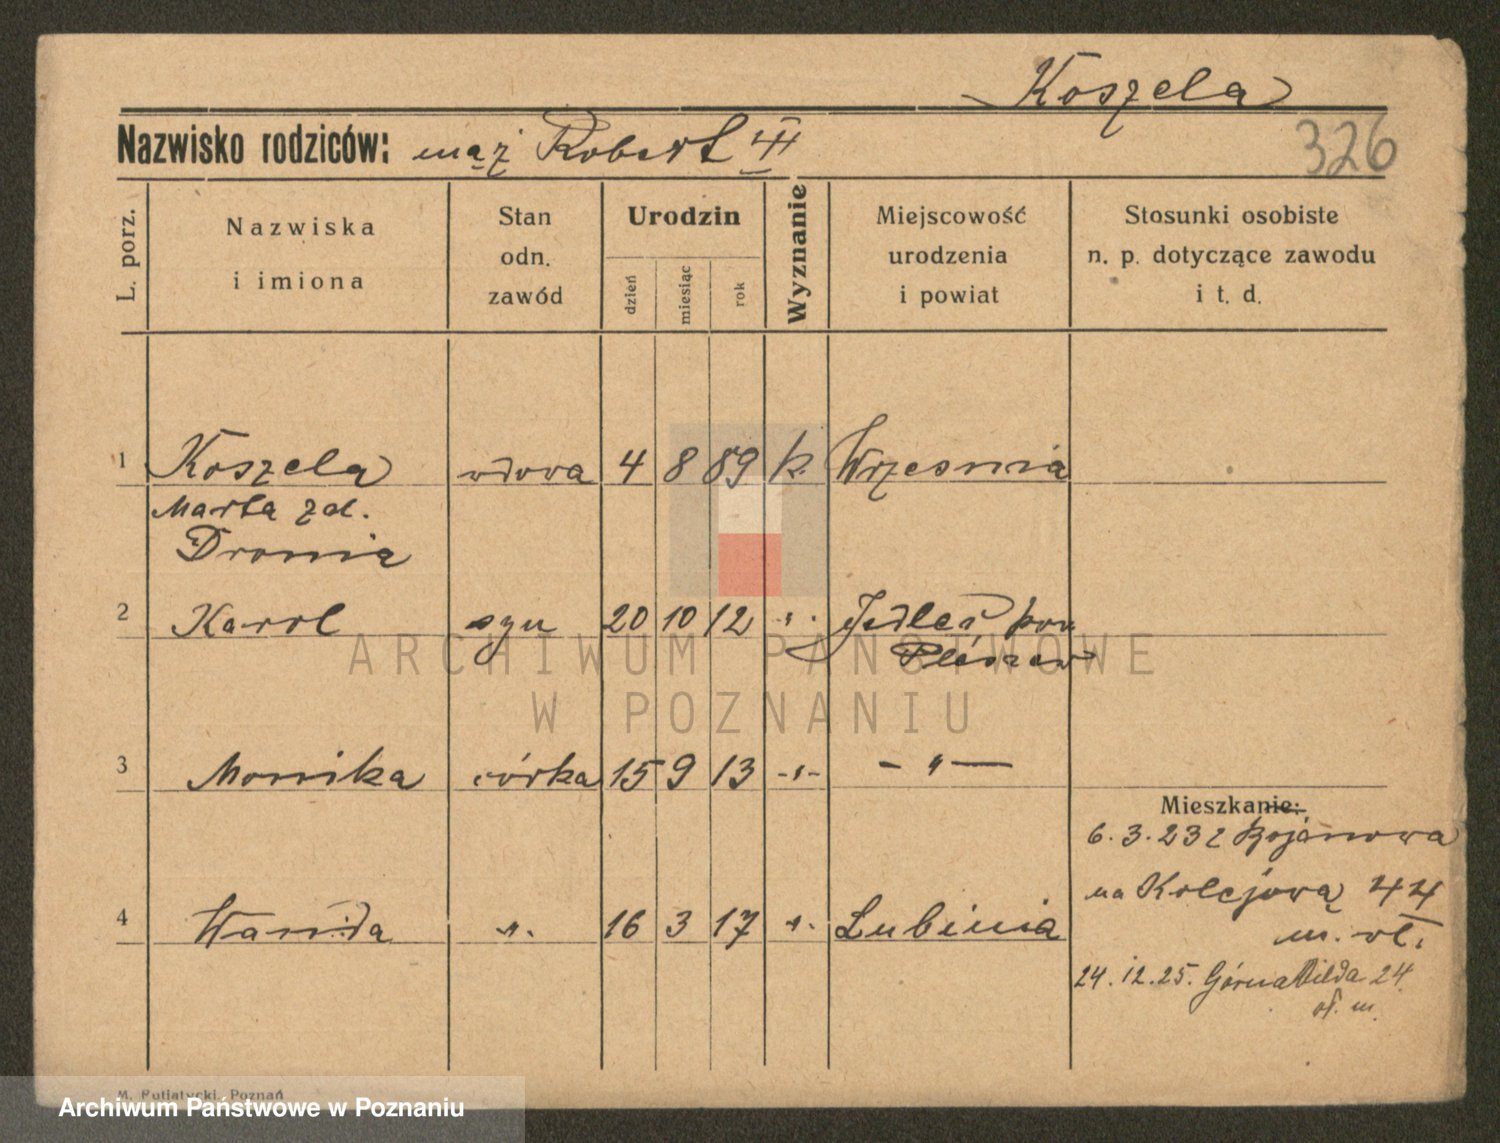 Koszela
Nazwisko rodziców: mąż Robert III
326
L. porz.
Nazwiska i imiona
Stan odn. zawód
Urodzin
dzień miesiąc rok
Wyznanie
Miejscowość urodzenia i powiat
Stosunki osobiste n. p. dotyczące zawodu i t. d.
1 Koszela wdowa 4 8 89 k. Wrzesnia
Marta zd.
Dronia
2 Karol syn 20 10 12 " Jedleć pow
Pleszew
3 Monika córka 15 9 13 -"- - " -
Mieszkanie:
6.3.23 z Bojanowa
na Kolejową 44
4 Wanda " 16 3 17 " Lubinia
m. wł.
24.12.25. Górna Wilda 24
of. m.
M. Putiatycki, Poznań
ARCHIWUM PAŃSTWOWE
W POZNANIU
Archiwum Państwowe w Poznaniu